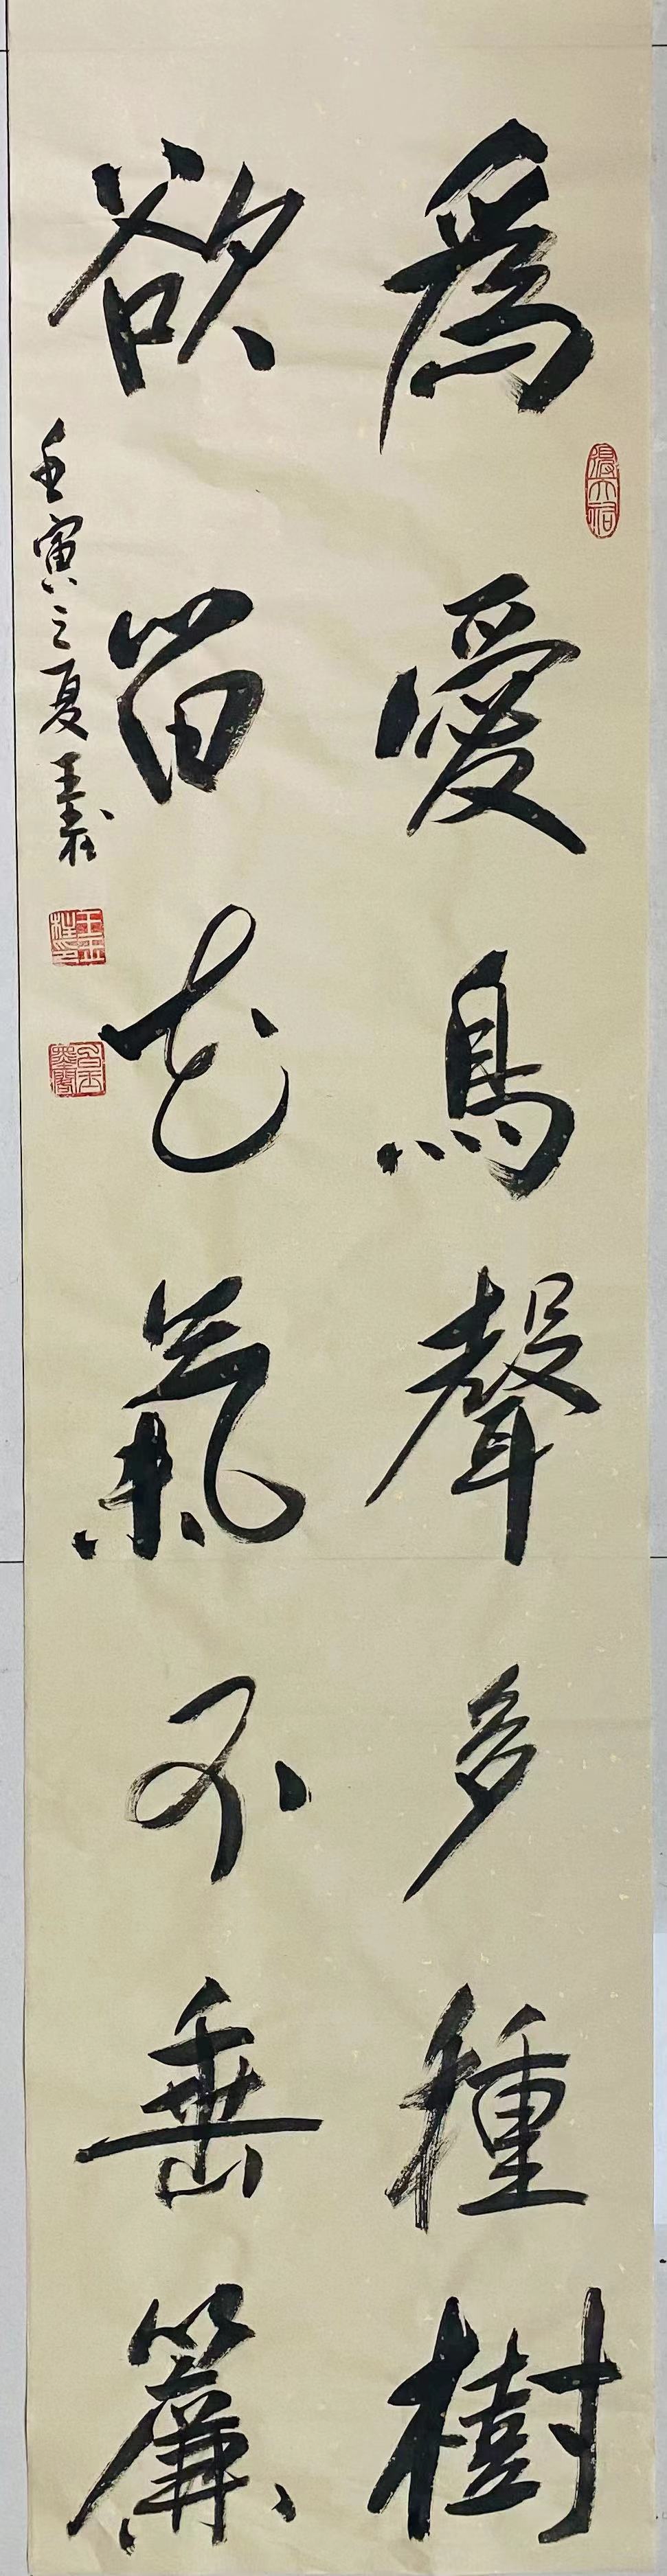 為愛鳥聲多種樹
欲留花氣不垂簾
壬寅之夏 王